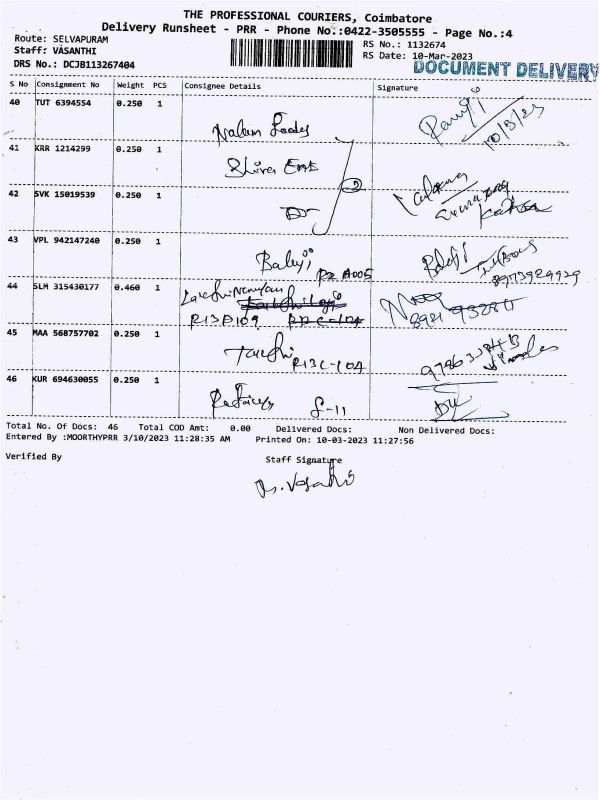 THE PROFESSIONAL COURIERS, Coimbatore
Delivery Runsheet - PRR - Phone No.:0422-3505555 - Page No.:4
Route: SELVAPURAM
RS No.: 1132674
Staff: VASANTHI
RS Date: 10-Mar-2023
DRS No.: DCJB113267404
DOCUMENT DELIVERY
S No Consignment No Weight PCS Consignee Details Signature
40 TUT 6394554 0.250 1
10/3/23
41 KRR 1214299 0.250 1 Shiva
42 SVK 15019539 0.250 1
43 VPL 942147240 0.250 1 Balaji A005 Balaji
8973929929
44 SLM 315430177 0.460 1
R13A109
45 MAA 568757702 0.250 1 R13C-10A
46 KUR 694630055 0.250 1 S-11
Total No. Of Docs: 46 Total COD Amt: 0.00 Delivered Docs: Non Delivered Docs:
Entered By :MOORTHYPRR 3/10/2023 11:28:35 AM Printed On: 10-03-2023 11:27:56
Verified By Staff Signature